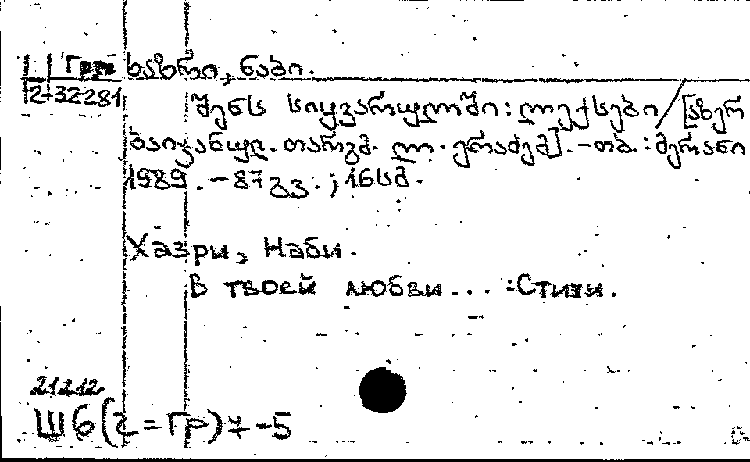 Гр ხაზრი, ნაბი.
2-32281
შენს სიყვარულში: ლექსები / [აზერ
ბაიჯანულ. თარგმ. ლ. ერაძემ]. – თბ.: მერანი
1989. – 87 გვ. ; 16სმ.
Хазри, Наби.
В твоей любви... :Стихи.
21212
Ш6(2=Гр)7-5